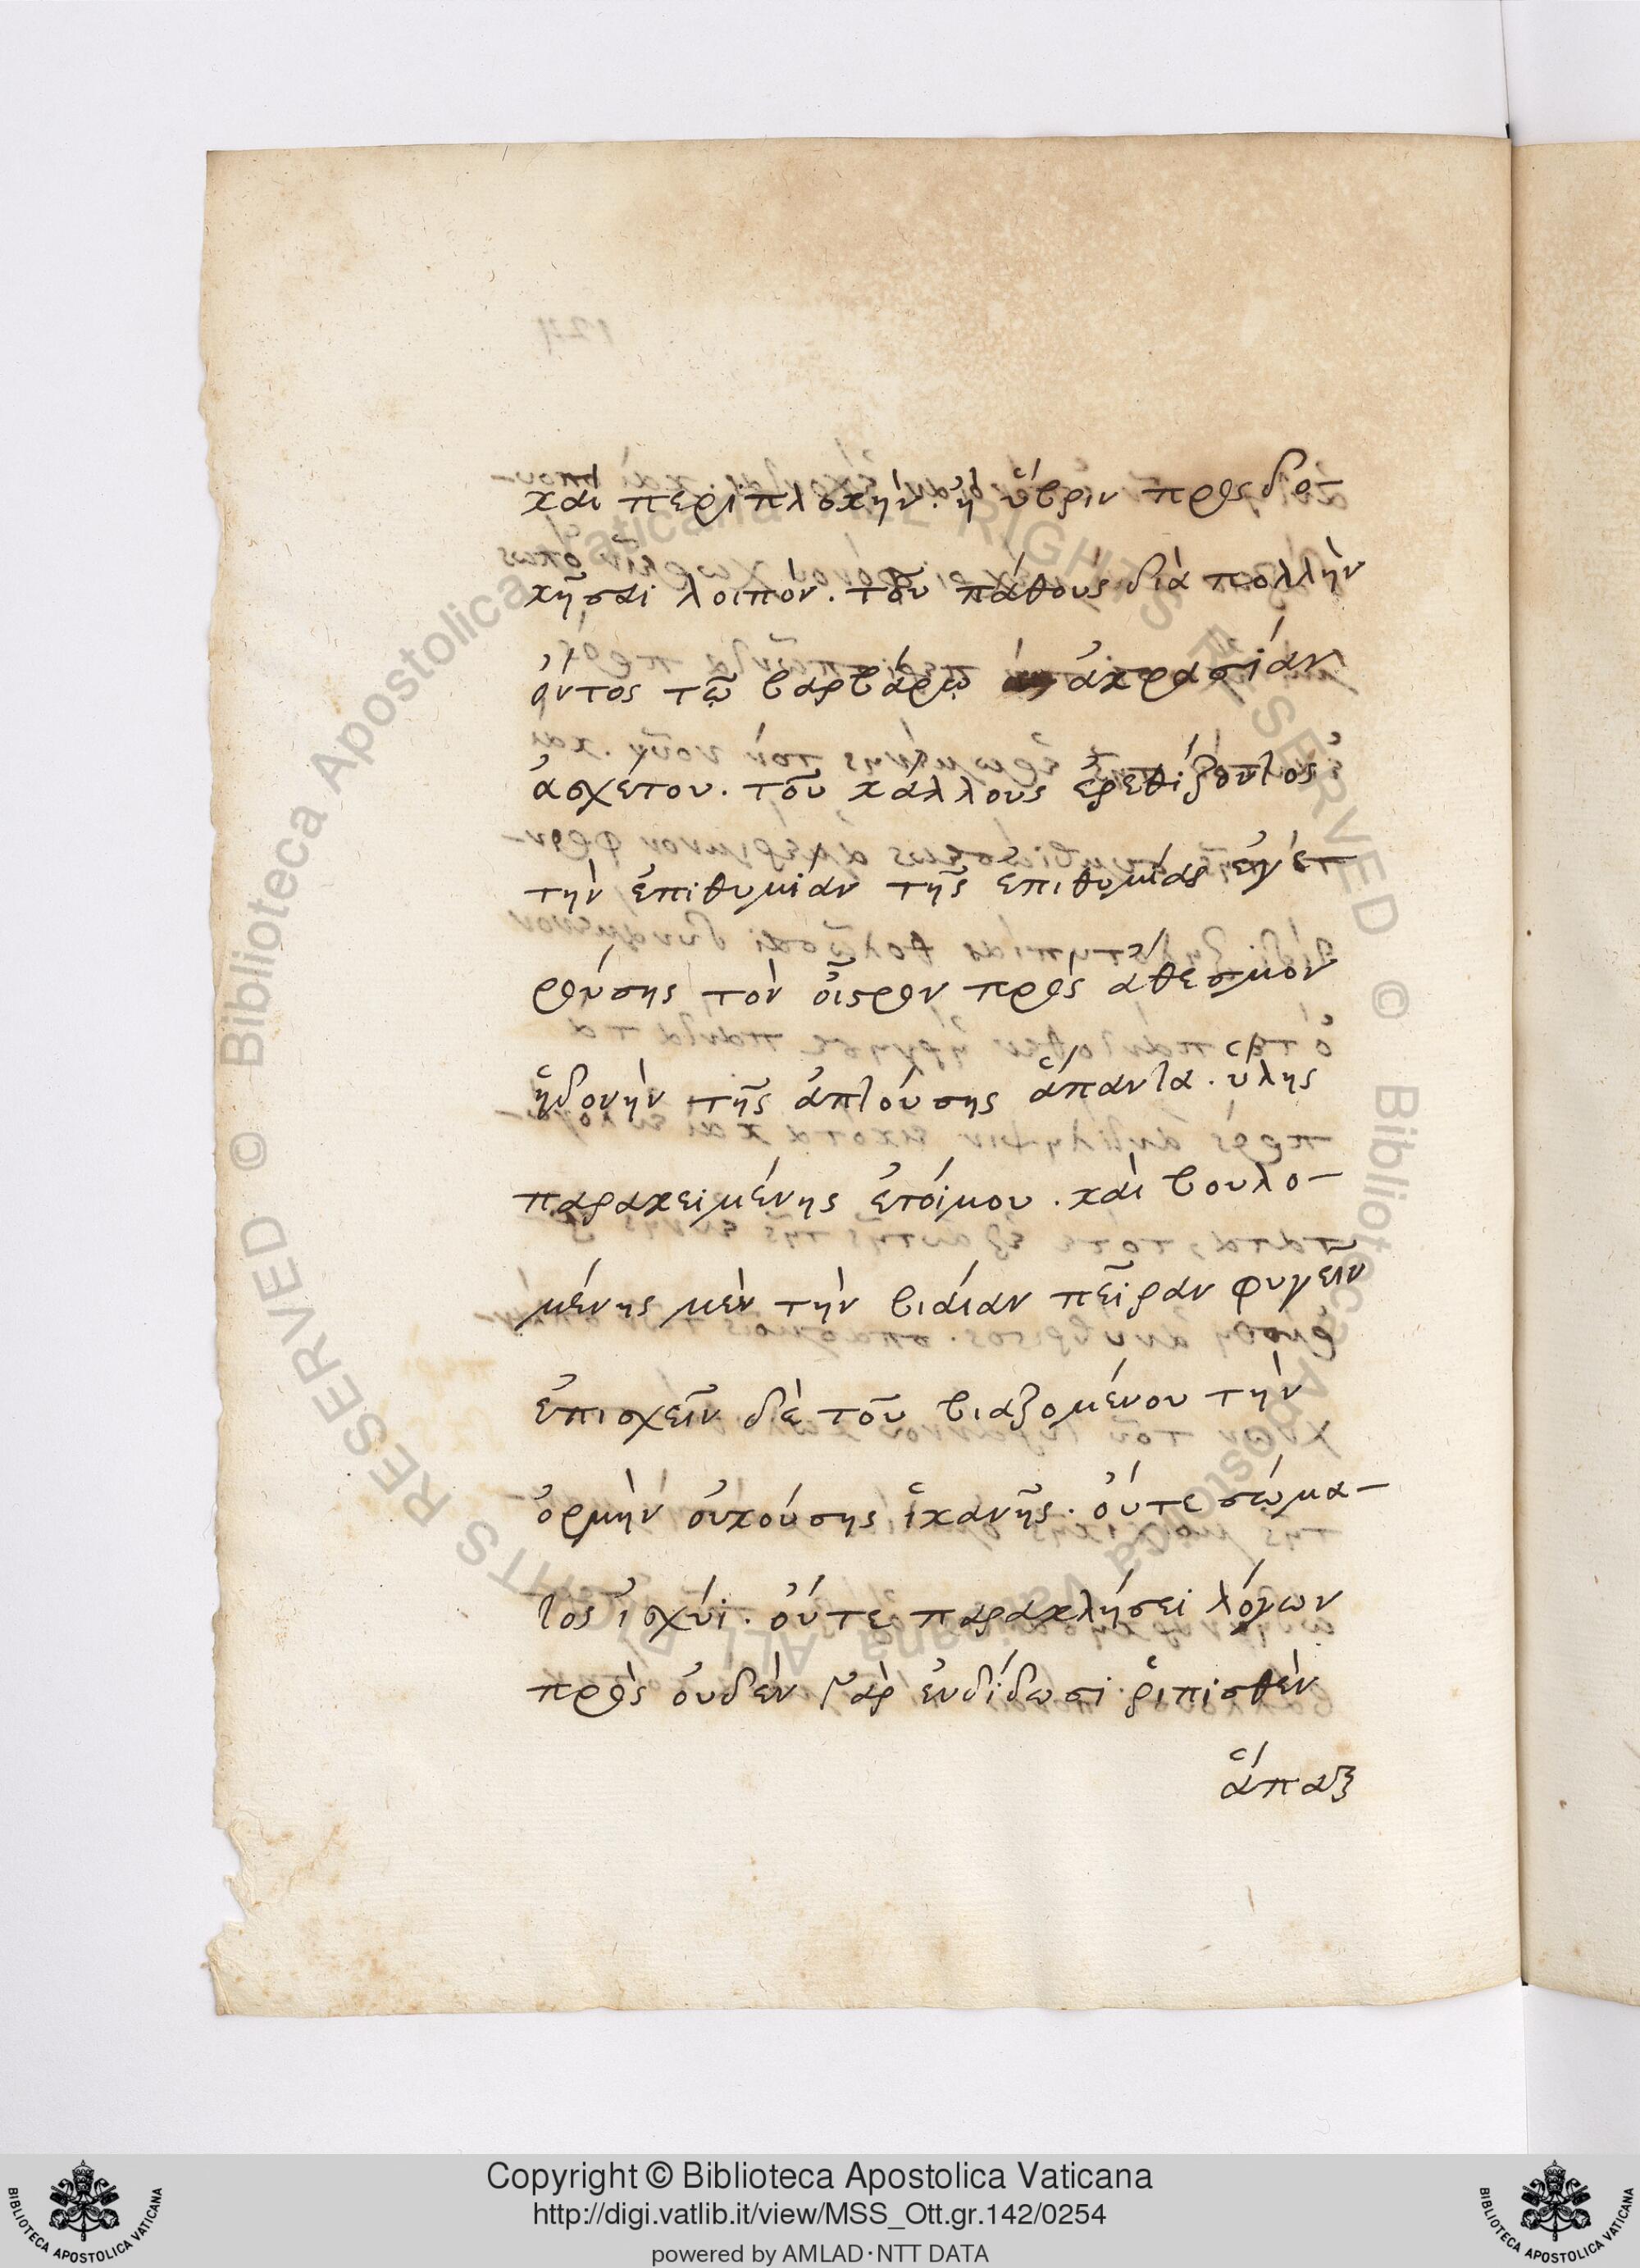 καὶ περιπλοκὴν. ἢ ὕβριν προσδο-
κῆσαι λοιπόν. τοῦ πάθους διὰ πολλὴν
ὄντος τῷ βαρβάρῳ ἀκρασίαν
ἀσχέτου. τοῦ κάλλους ἐρεθίζοντος
τὴν ἐπιθυμίαν τῆς ἐπιθυμίας
τὸν οἶστρον πρὸς ἄθεσμον
ἡδονὴν τῆς ἁπτούσης ἅπαντα. ὕλης
παρακειμένης ἑτοίμου. καὶ βουλο-
μένης μὲν τὴν βιαίαν πεῖραν φυγεῖν
ἐπισχεῖν δὲ τοῦ βιαζομένου τὴν
ὁρμὴν οὐκ οὔσης ἱκανῆς. οὔτε σώμα-
τος ἰσχύϊ. οὔτε παρακλήσει λόγων
πρὸς οὐδὲν γὰρ ἐνδίδωσι ῥιπισθὲν
ἅπαξ
Copyright © Biblioteca Apostolica Vaticana
http://digi.vatlib.it/view/MSS_Ott.gr.142/0254
powered by AMLAD·NTT DATA
BIBLIOTECA APOSTOLICA VATICANA
BIBLIOTECA APOSTOLICA VATICANA